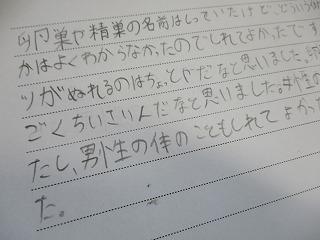 卵巣や精巣の名前はしっていたけど、どういう
かはよくわからなかったのでしれてよかったです
ツがぬれるのはちょっとやだなと思いました。
ごくちいさい人だなと思いました。女性の
たし、男性の体のこともしれてよかっ
た。